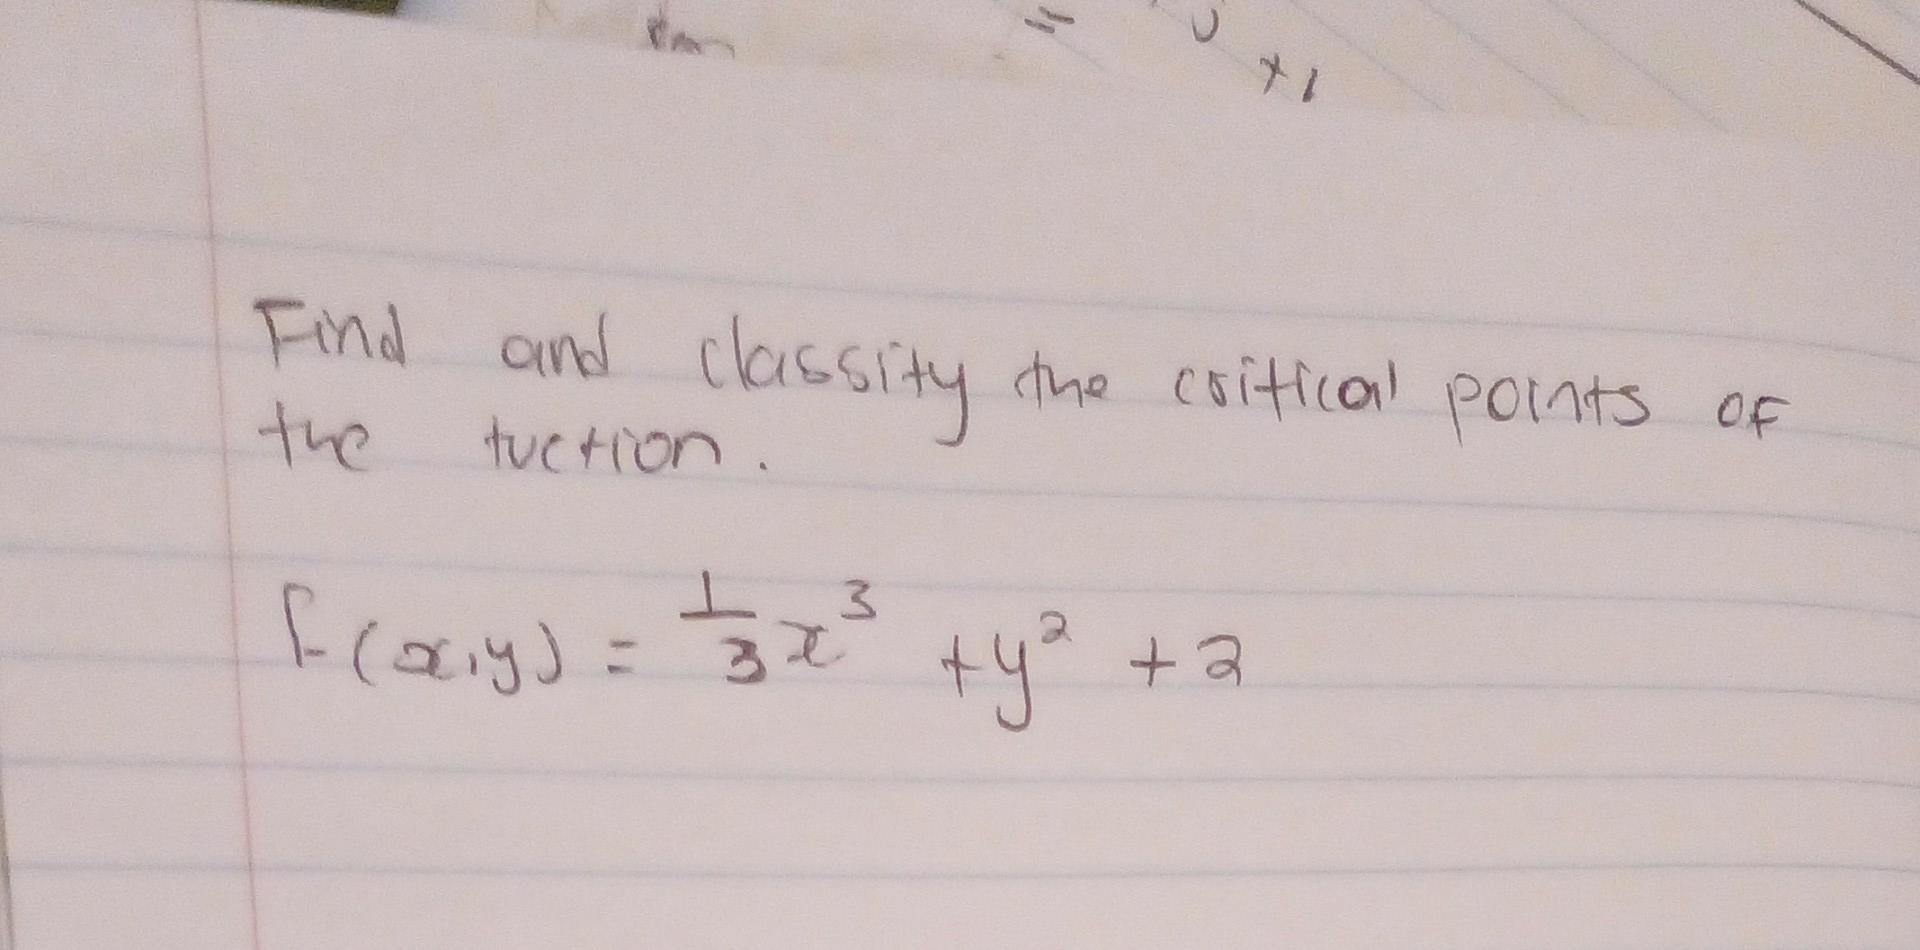 = 
+1
Find and classity the critical points of
the tuction.
f(x,y) = 1/3 x³ + y² + 2